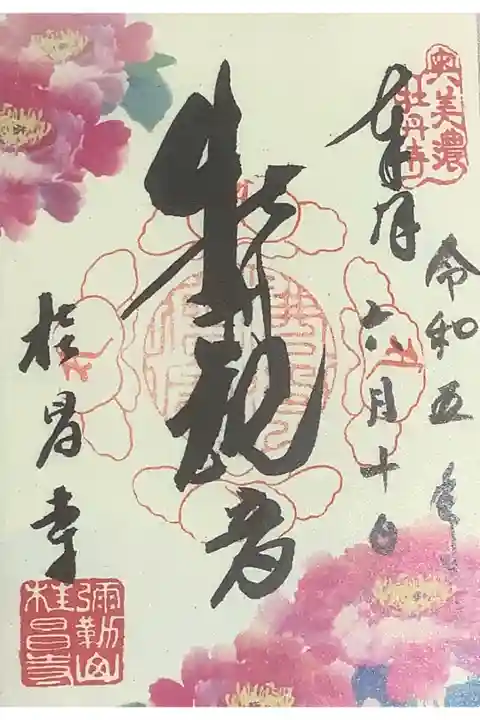 奥美濃
牡丹寺
令和五年
奉拝
六月十日
牡丹観音
桂昌寺
彌勒山
桂昌寺